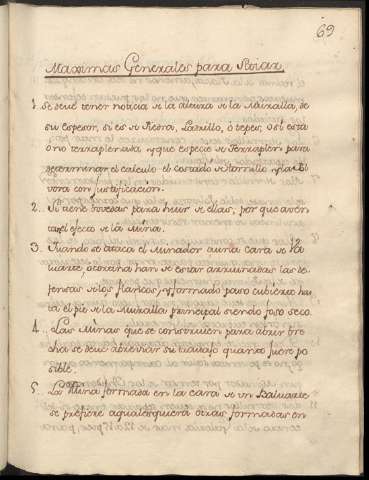 69
Maximas Generales para Bolar.
1. Se deve tener noticia de la altura de la Muralla, de
su espesor, si es de Piedra, Ladrillo, ò tepes, o si está
ò no terraplenada, y que especie de Terraplen para
determinar el calculo el costado de Hornillo, y la Pol
vora con justificacion.
2. Si tiene bovedas para huir de ellas, por que aven
tan el efecto de la Mina.
3. Quando se ataca el Minador a una cara de Ba
luarte, ò cortina han de estar arruinadas las de
fensas de los flancos, y formado paso cubierto has
ta el pie de la Muralla principal siendo foso seco.
4. Las Minas que se construien para abrir bre
cha se deve abreviar su trabajo quanto fuere po
sible.
5. La Mina formada en la cara de un Baluarte
se prefiere a qualesquiera otras formadas en